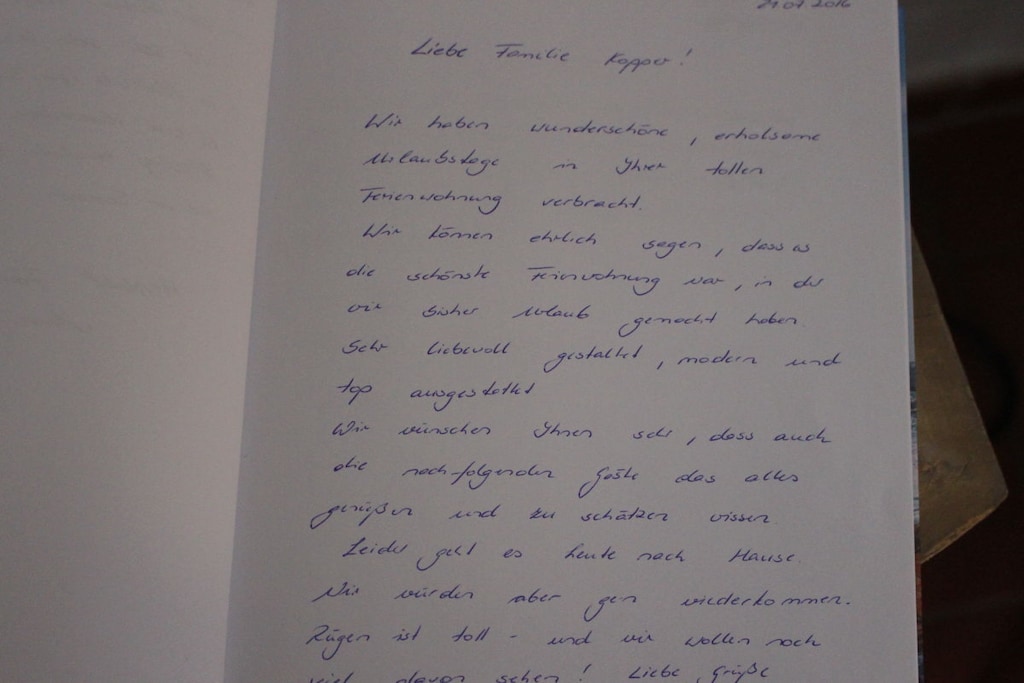 21.07.2016
Liebe Familie Kopper!
Wir haben wunderschöne, erholsame
Urlaubstage in Ihrer tollen
Ferienwohnung verbracht.
Wir können ehrlich sagen, dass es
die schönste Ferienwohnung war, in der
wir bisher Urlaub gemacht haben.
Sehr liebevoll gestaltet, modern und
top ausgestattet.
Wir wünschen Ihnen sehr, dass auch
die nachfolgenden Gäste das alles
genießen und zu schätzen wissen.
Leider geht es heute nach Hause.
Wir würden aber gern wiederkommen.
Rügen ist toll - und wir wollen noch
viel davon sehen! Liebe Grüße